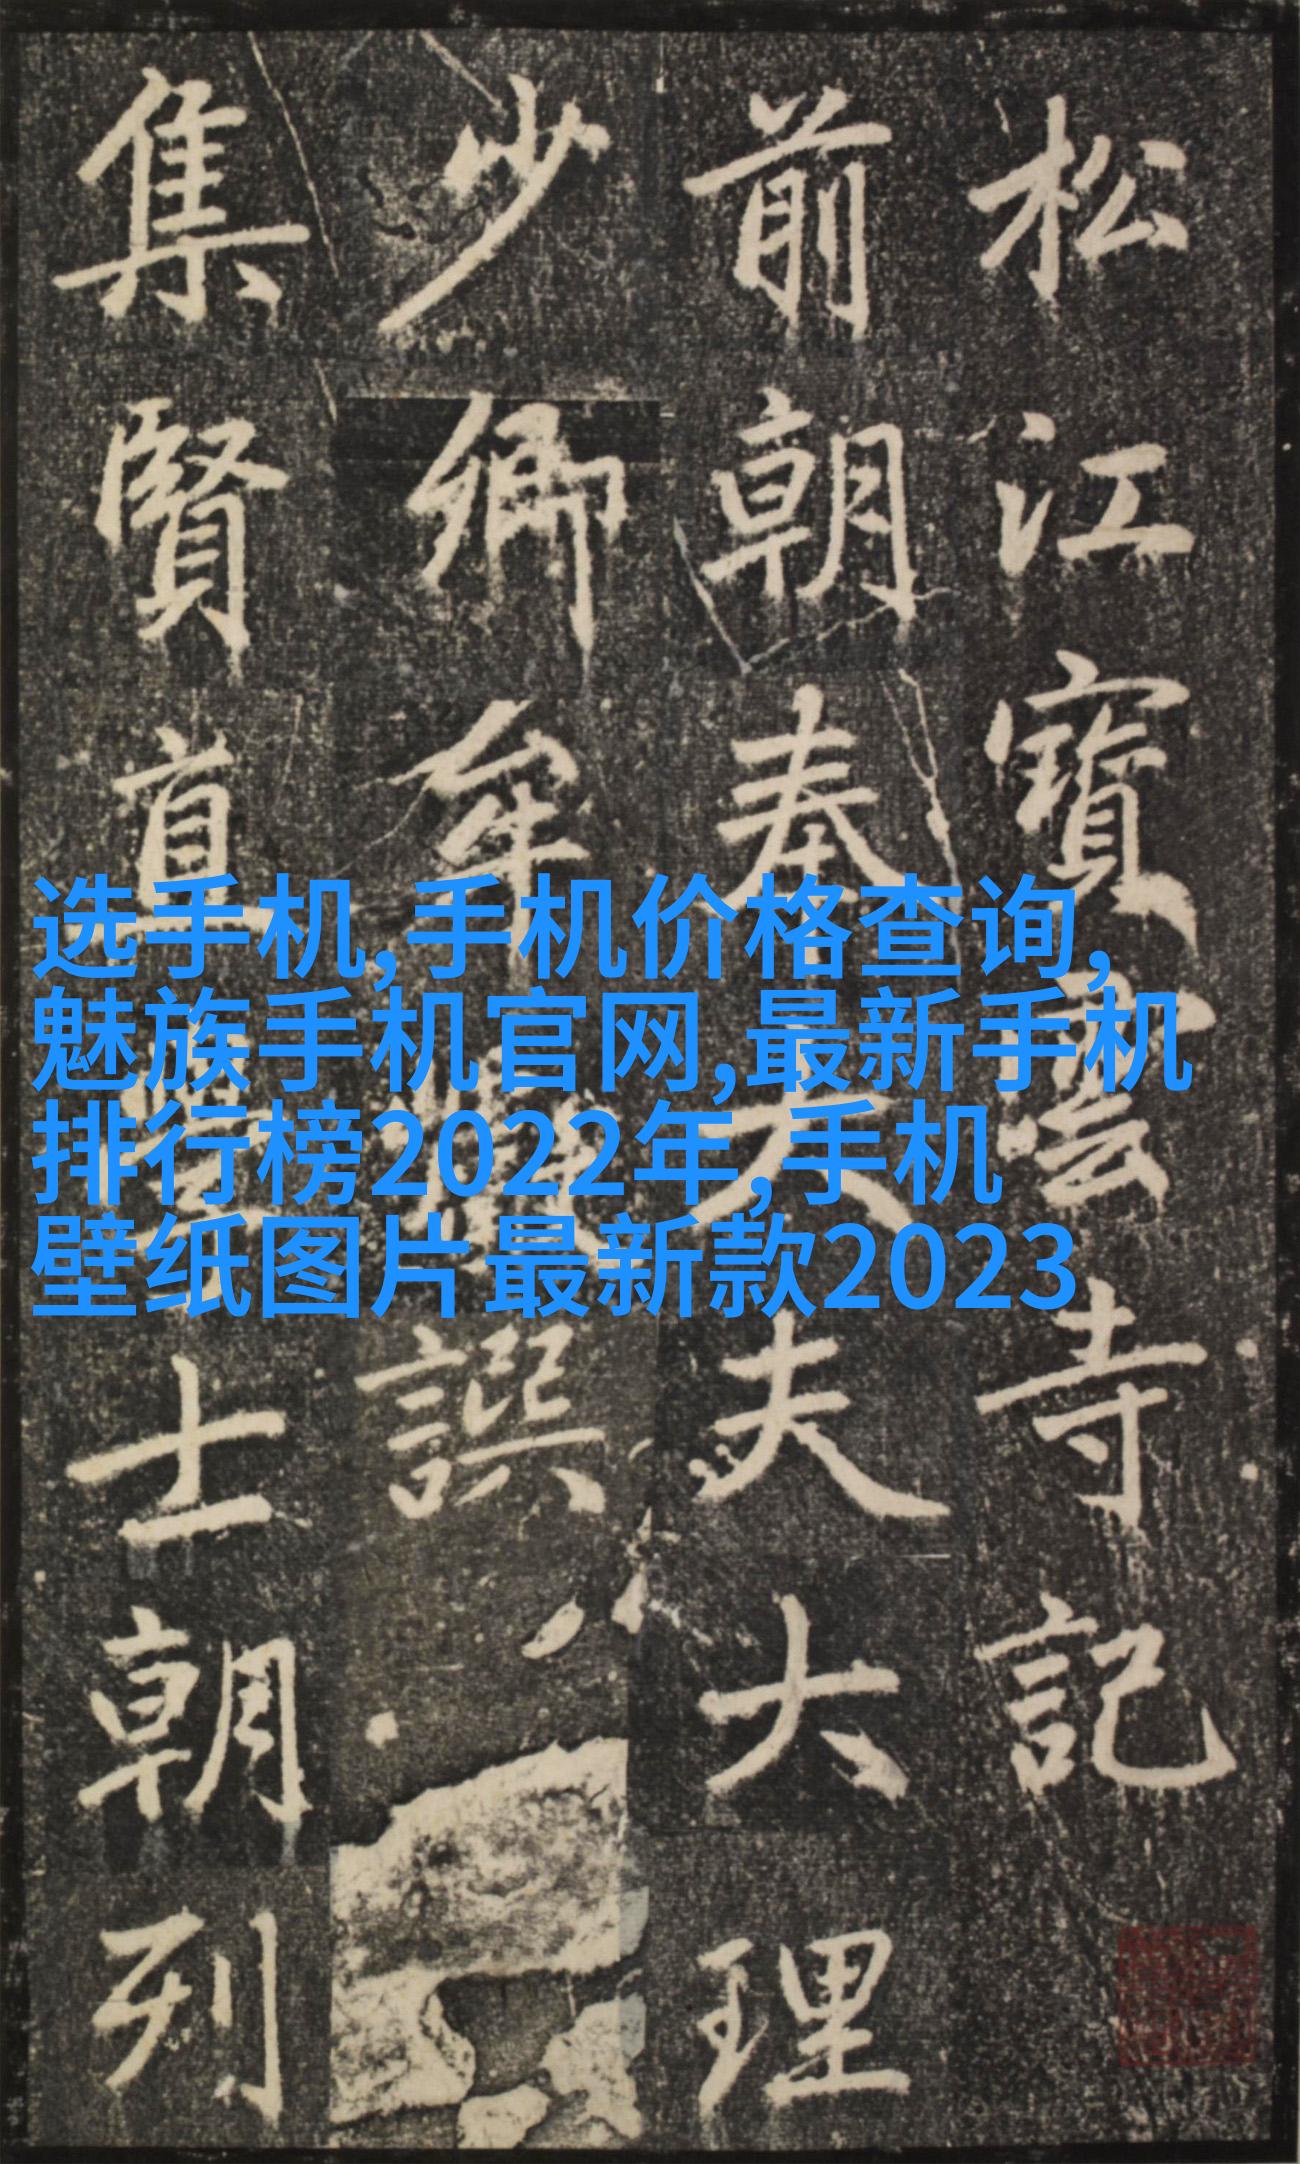 松江寶雲寺記
前朝奉大夫大理
少卿牟譔
集賢直士朝列
选手机,手机价格查询,
魅族手机官网,最新手机
排行榜2022年,手机
壁纸图片最新款2023